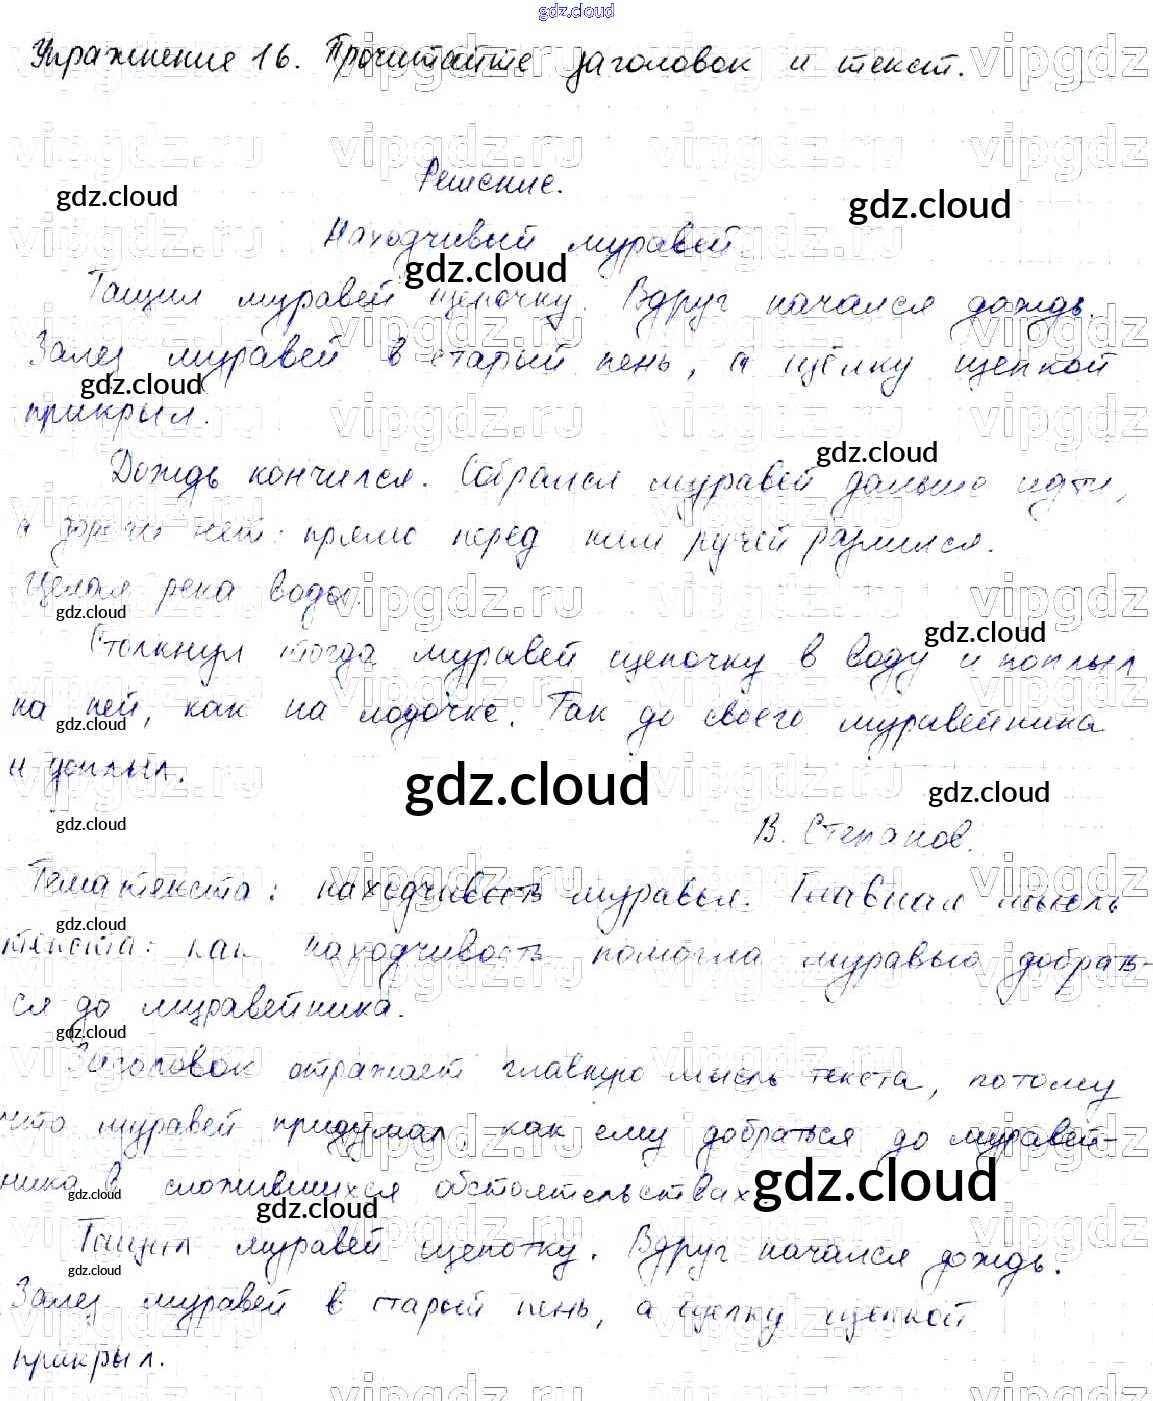 gdz.cloud
Упражнение 16. Прочитайте заголовок и текст.
Решение.
gdz.cloud gdz.cloud
Находчивый муравей.
gdz.cloud
Тащил муравей щепочку. Вдруг начался дождь.
Залез муравей в старый пень, а щёлку щепкой
gdz.cloud
прикрыл.
gdz.cloud
Дождь кончился. Собрался муравей дальше идти,
а дороги нет: прямо перед ним ручей разлился.
Целая река воды.
gdz.cloud
gdz.cloud
Столкнул тогда муравей щепочку в воду и поплыл
на ней, как на лодочке. Так до своего муравейника
gdz.cloud
и доплыл.
gdz.cloud gdz.cloud
gdz.cloud
В. Степанов.
Тема текста: находчивость муравья. Главная мысль
gdz.cloud
текста: как находчивость помогла муравью добрать-
ся до муравейника.
gdz.cloud
Заголовок отражает главную мысль текста, потому
что муравей придумал, как ему добраться до муравей-
ника в сложившихся обстоятельствах.
gdz.cloud gdz.cloud gdz.cloud
Тащил муравей щепотку. Вдруг начался дождь.
gdz.cloud
Залез муравей в старый пень, а щелку щепкой
прикрыл.